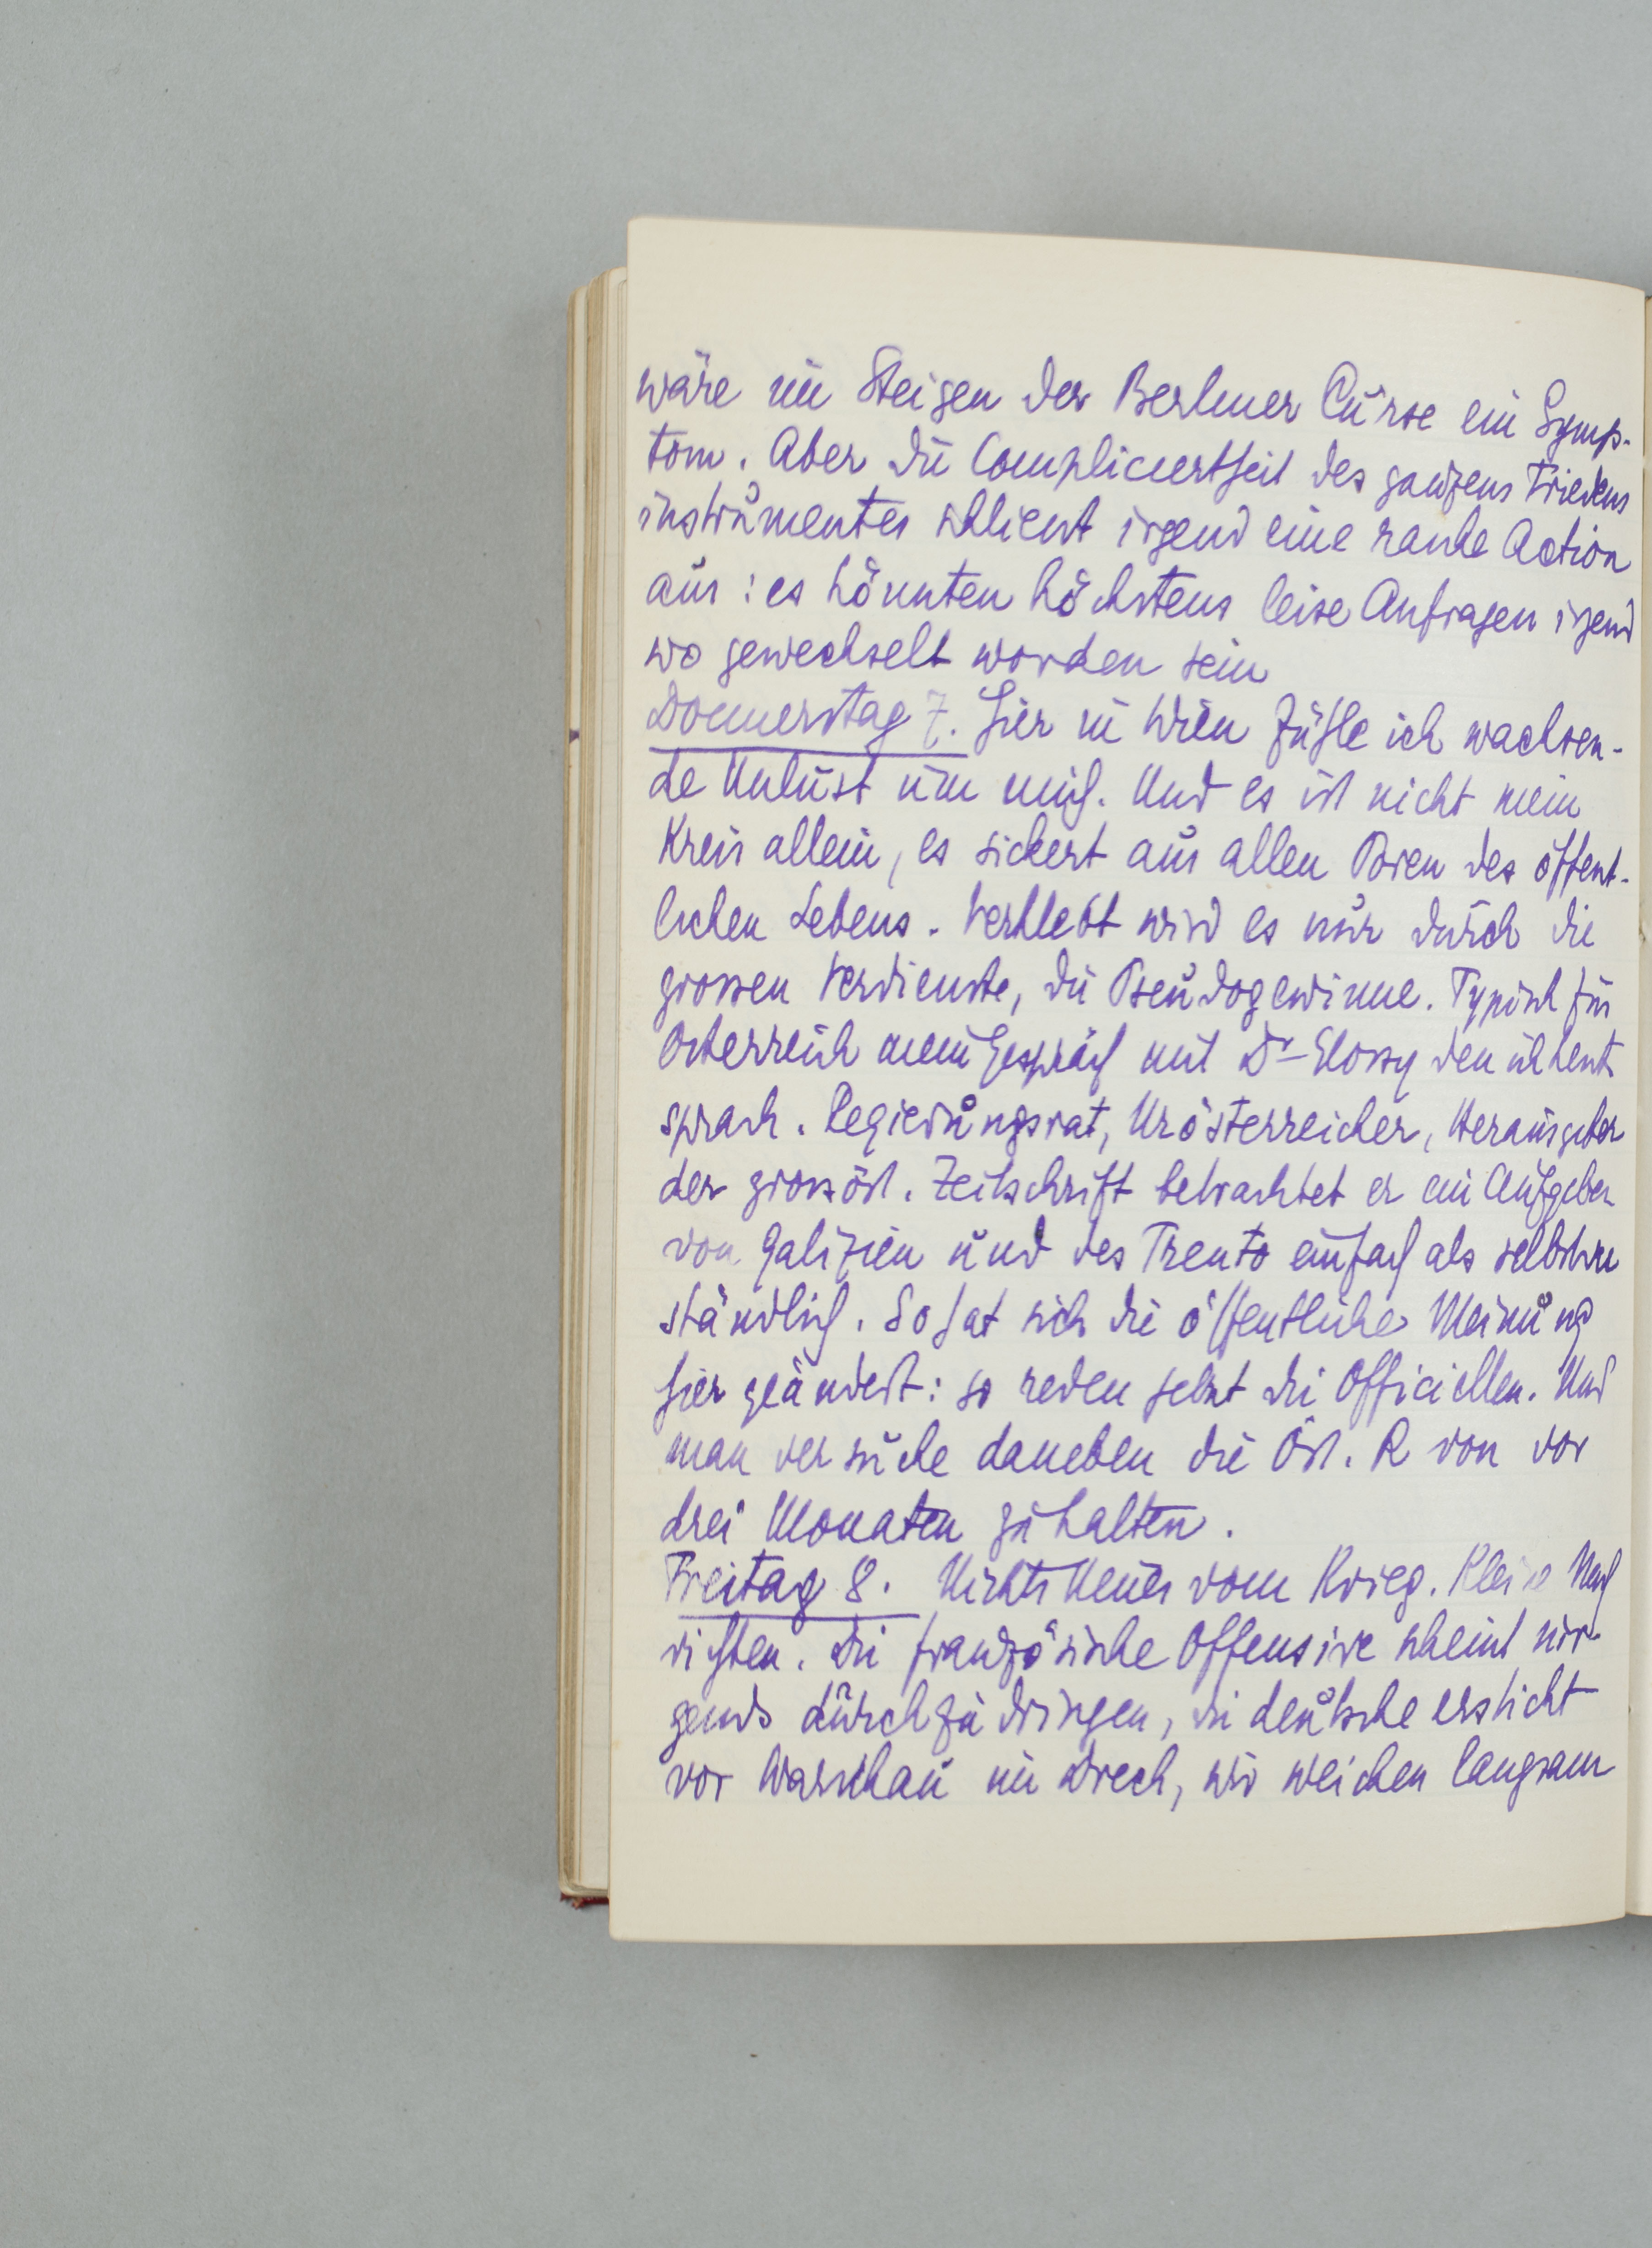 wäre im Steigen der Berliner Curse ein Symp-
tom. Aber die Compliciertheit des ganzens Friedens
instrumentes schliesst irgend eine rasche Action
aus: es könnten höchstens leise Anfragen irgend
wo gewechselt worden sein
Donnerstag 7. Hier in Wien fühle ich wachsen-
de Unlust um mich. Und es ist nicht mein
Kreis allein, es sickert aus allen Poren des öffent-
lichen Lebens. Verklebt wird es nur durch die
grossen Verdienste, die Pseudogewinne. Typisch für
Österreich mein Gespräch mit Dr Elossy den ich heut
sprach. Regierungsrat, Urösterreicher, Herausgeber
der grossöst. Zeitschrift betrachtet er ein Aufgeben
von Galizien und des Trento einfach als selbstver
ständlich. So hat sich die öffentliche Meinung
hier geändert: so reden selbst die Officiellen. Und
man versuche daneben die Öst. R von vor
drei Monaten zu halten.
Freitag 8. Nichts Neues vom Krieg. Kleine Nach
richten. Die französische Offensive scheint nir
gends durchzudringen, die deutsche erstickt
vor Warschau im Dreck, wir weichen langsam